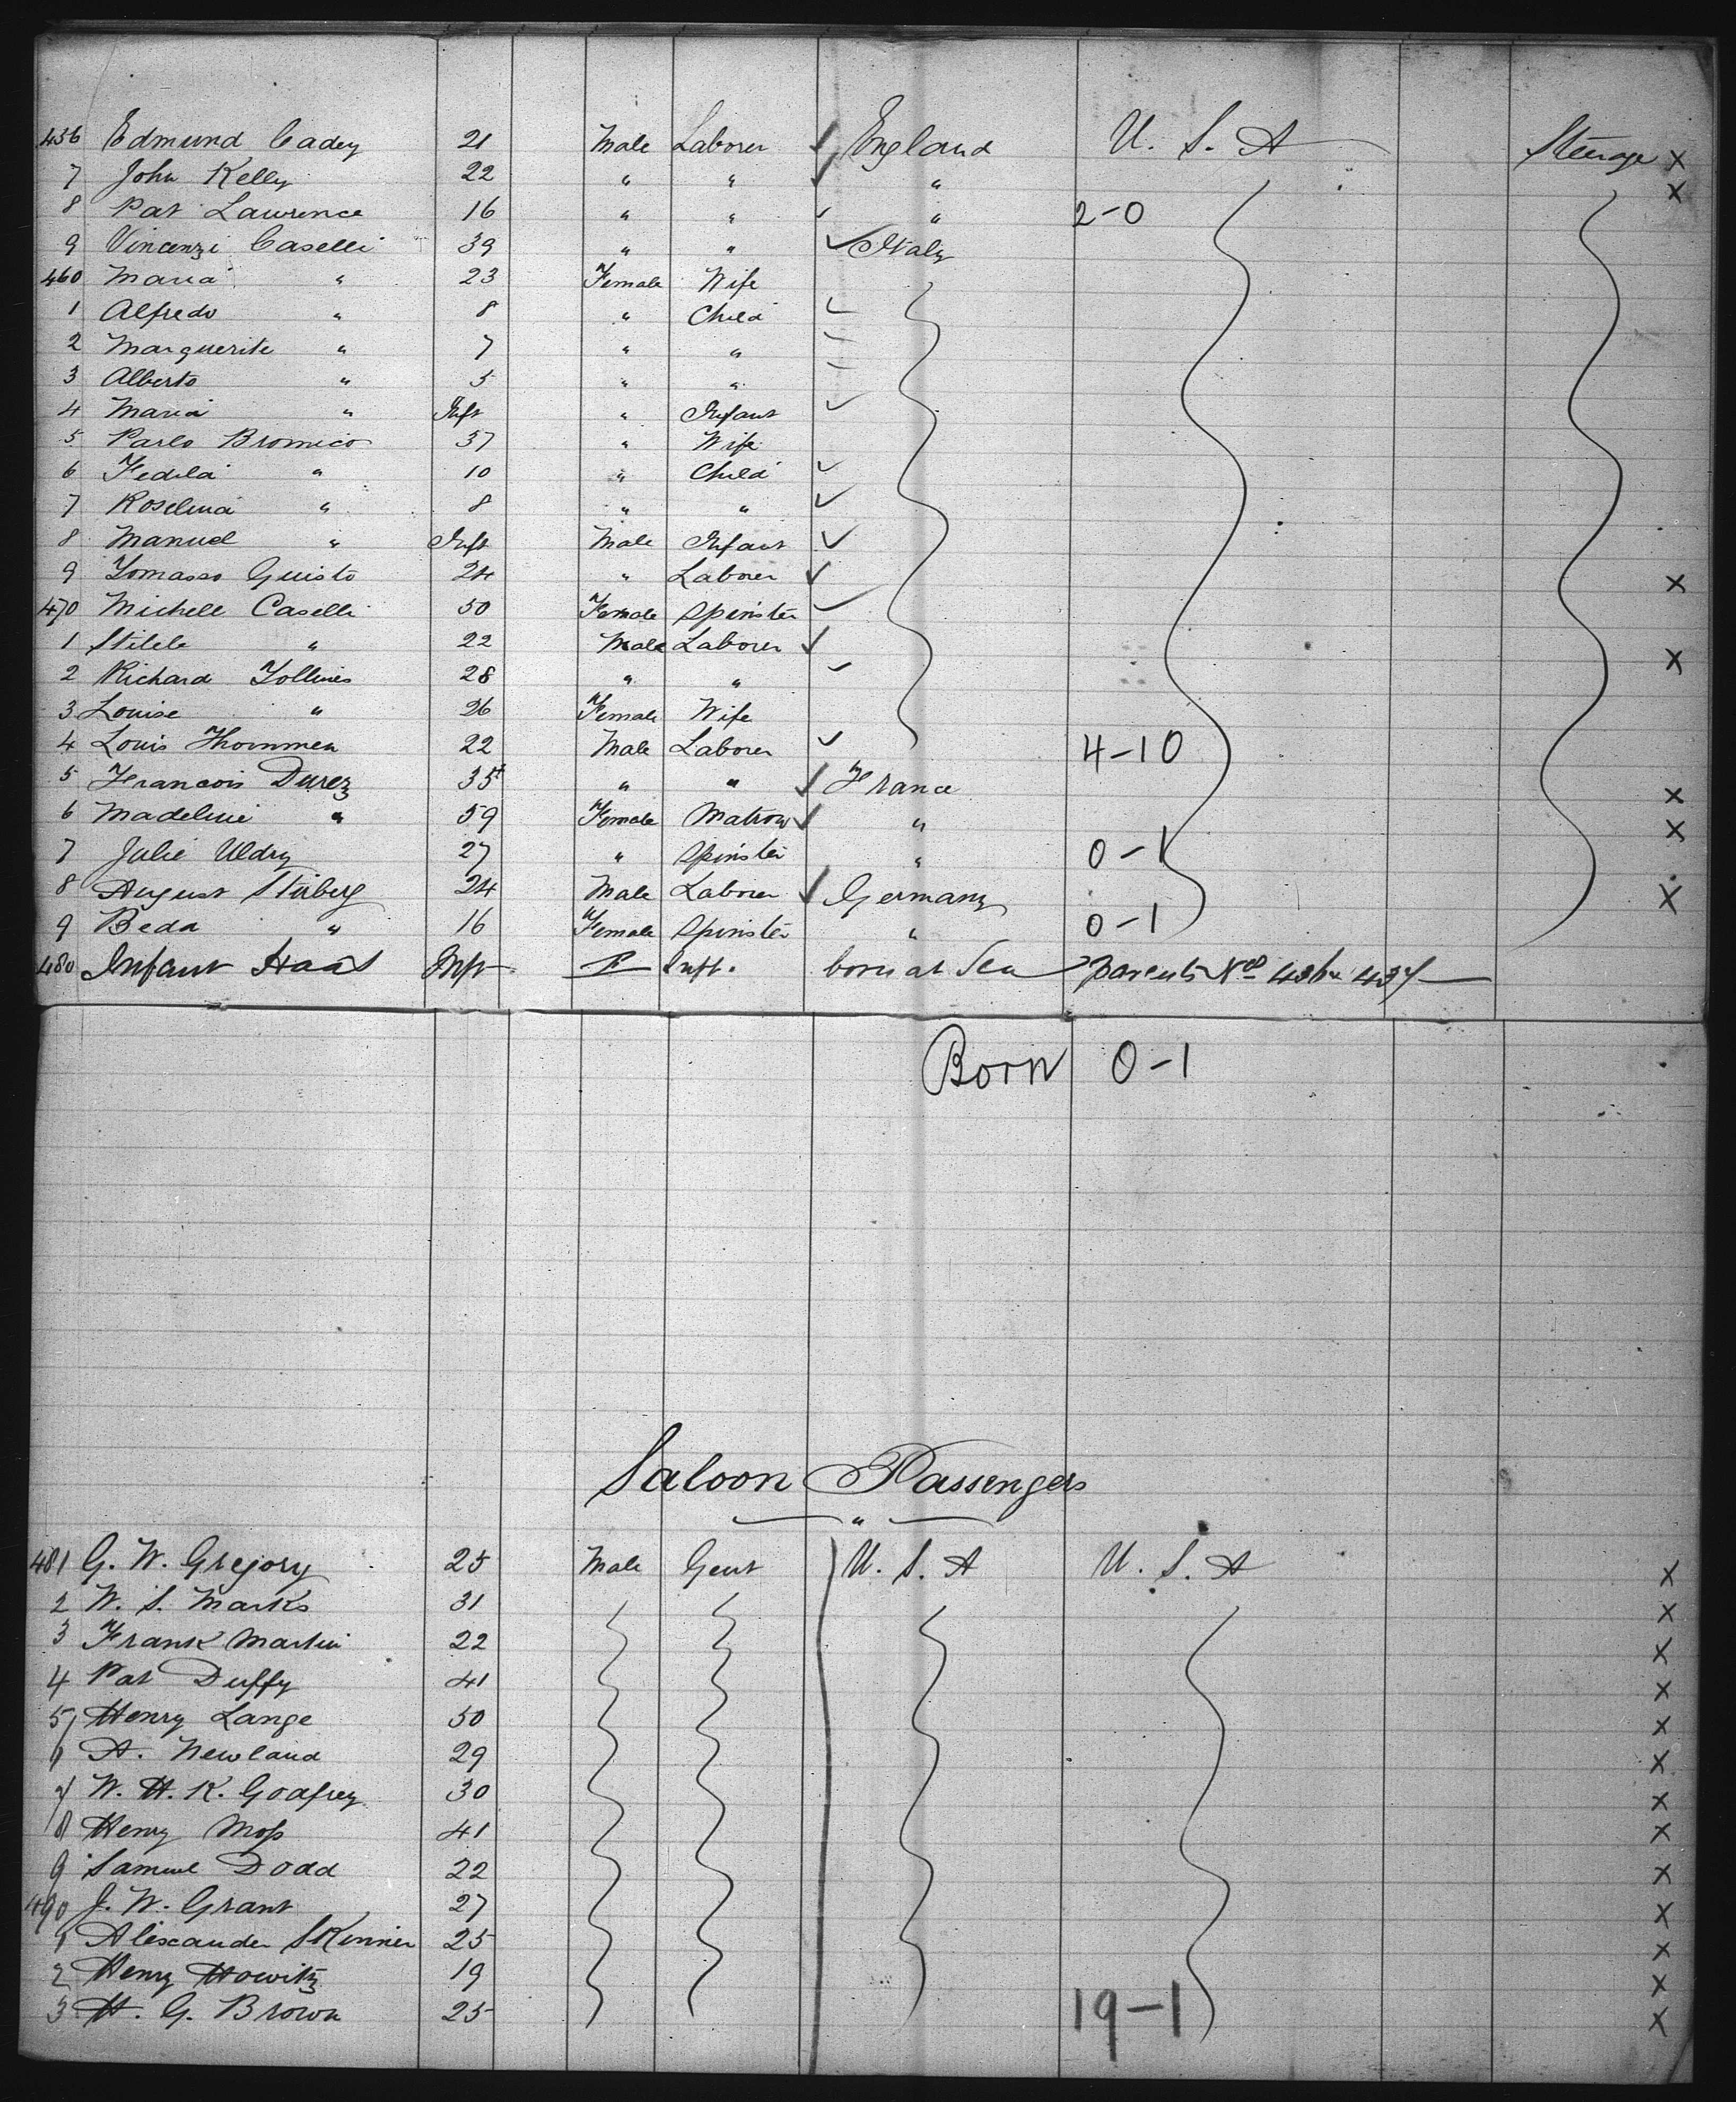 456 Edmund Cadey 21 Male Laborer ✓ England U. S. A Steerage x
7 John Kelly 22 " " ✓ " x
8 Pat Lawrence 16 " " ✓ " 2-0
9 Vincenzi Caselli 39 " " ✓ Italy
460 Maria " 23 Female Wife
1 Alfredo " 8 " Child ✓
2 Marguerite " 7 " "
3 Alberto " 5 " "
4 Maria " Inft " Infant ✓
5 Parlo Bromico 37 " Wife
6 Fedila " 10 " Child ✓
7 Roselina " 8 " " ✓
8 Manuel " Inft Male Infant ✓
9 Tomasso Guisto 24 " Laborer ✓ x
470 Michele Caselli 50 Female Spinster ✓
1 Stilele " 22 Male Laborer ✓ x
2 Richard Tollines 28 " " ✓
3 Louise " 26 Female Wife
4 Louis Thommen 22 Male Laborer ✓ 4-10
5 Francois Durez 35 " " ✓ France x
6 Madeline " 59 Female Matron ✓ " x
7 Julie Uldry 27 " Spinster " 0-1
8 August Stuberg 24 Male Laborer ✓ Germany x
9 Beda " 16 Female Spinster " 0-1
480 Infant Haas Inft F Inft. born at Sea parents Nos 436 437
Born 0-1
Saloon Passengers
"
481 G. W. Gregory 25 Male Gent U. S. A U. S. A x
2 W. S. Marks 31 x
3 Frank Martin 22 x
4 Pat Duffy 41 x
5 Henry Lange 50 x
6 A. Newland 29 x
7 W. H. K. Godfrey 30 x
8 Henry Moss 41 x
9 Samuel Dodd 22 x
490 J. W. Grant 27 x
1 Alexander Skinner 25 x
2 Henry Howitz 19 x
3 H. G. Brown 25 19-1 x